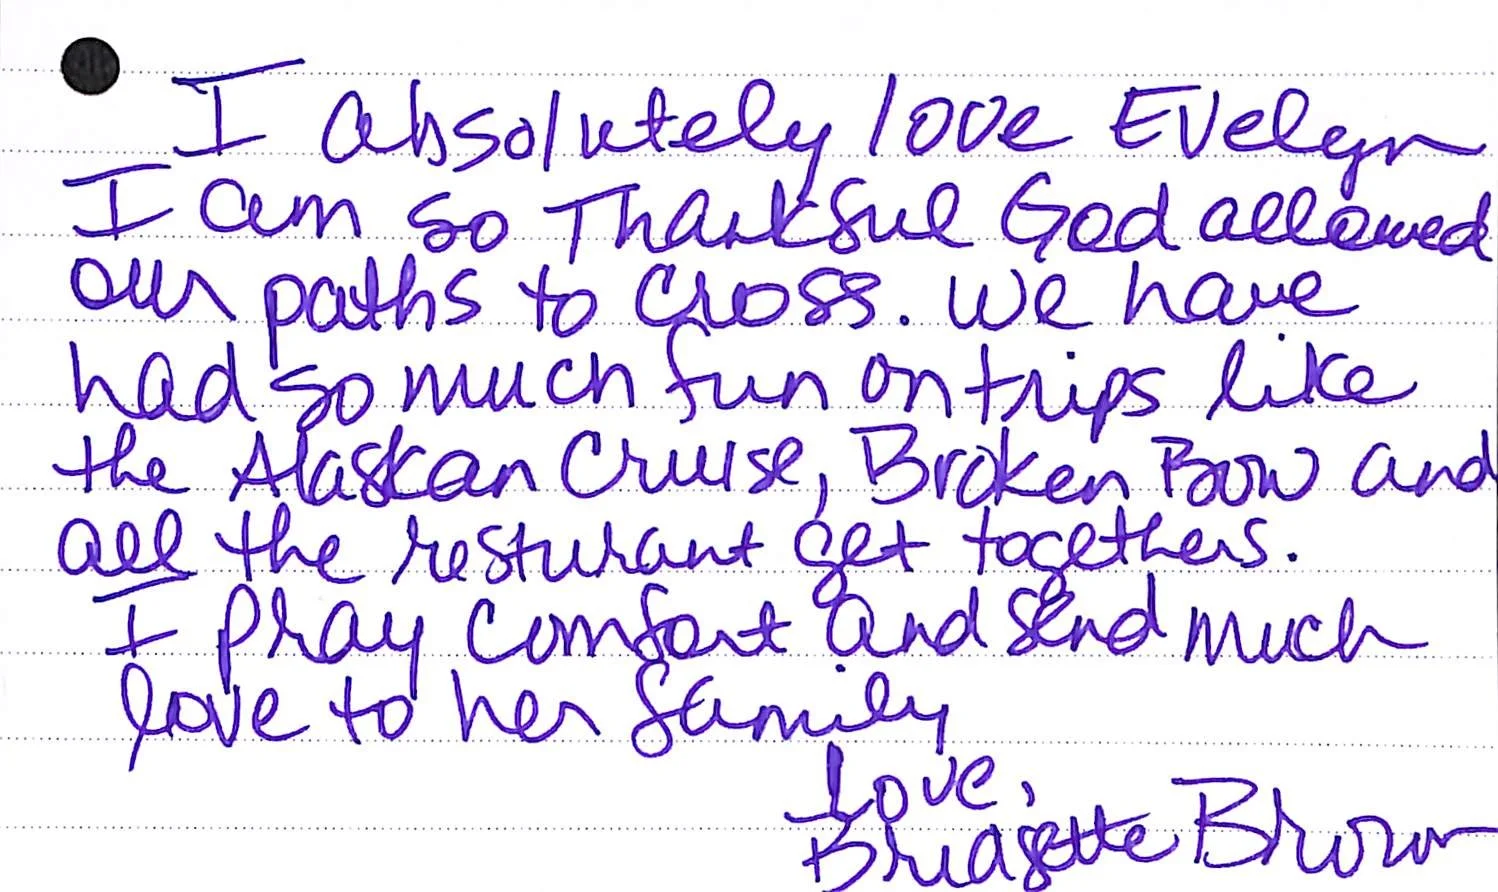 I absolutely love Evelyn
I am so Thankful God allowed
our paths to cross. We have
had so much fun on trips like
the Alaskan Cruise, Broken Bow and
all the resturant get togethers.
I pray comfort and send much
love to her family
Love,
Bridgette Brown